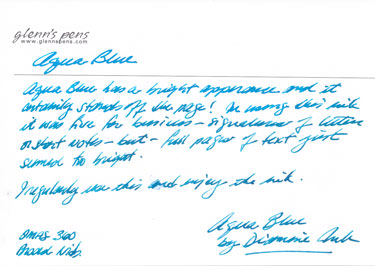 glenn's pens
www.glennspens.com
Aqua Blue
Aqua Blue has a bright apperance and it
certainly stands off the page! In using this ink
it was fine for business - signatures of letters
or short notes - but - full pages of text just
seemed to bright.
I regularly use this and enjoy the ink.
Omas 360
Broad Nib.
Aqua Blue
by Diamine Ink